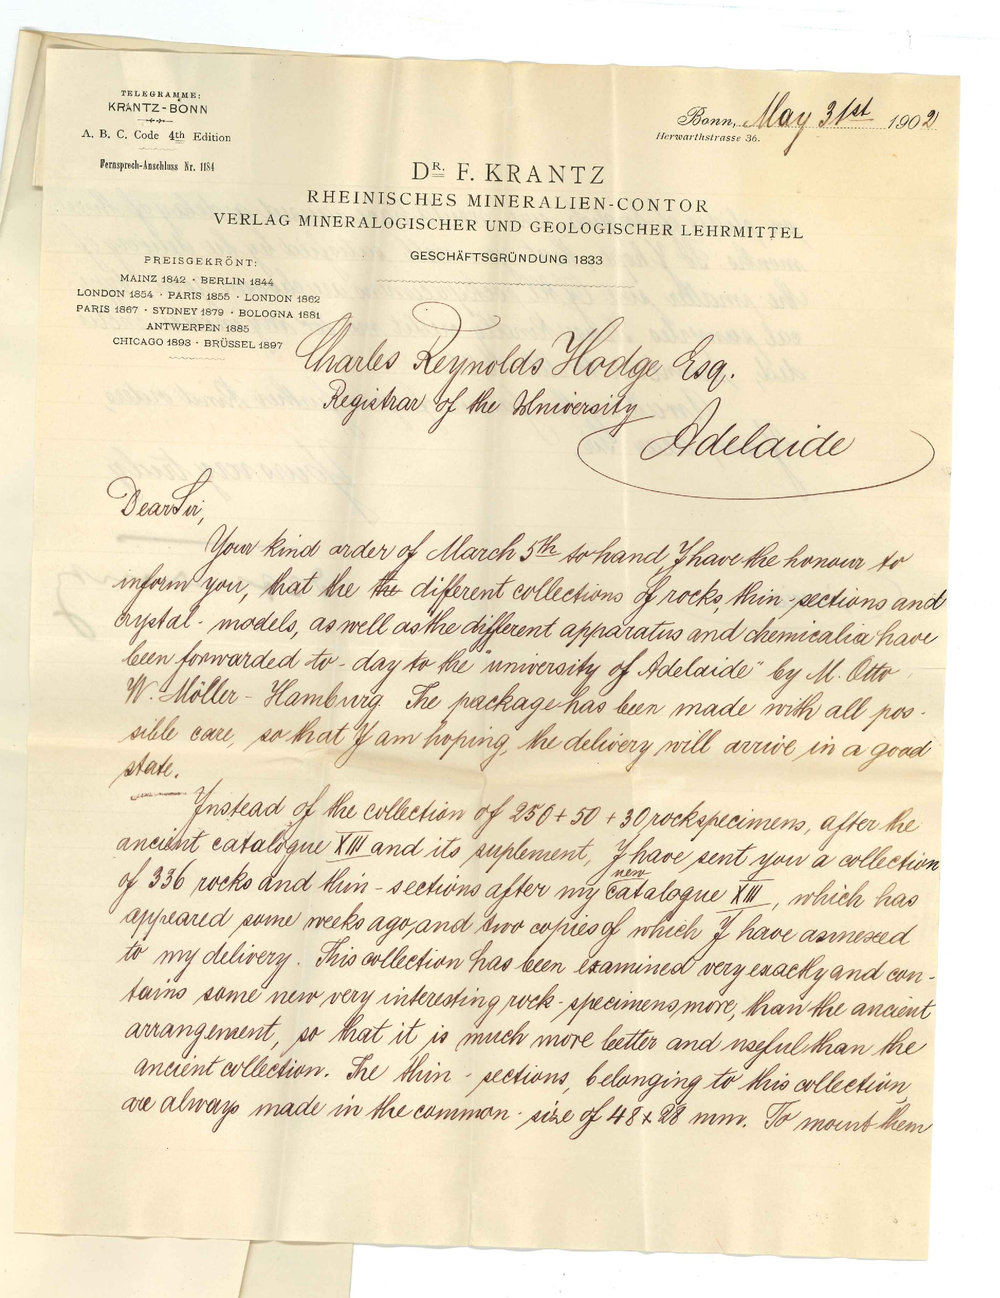 TELEGRAMME:
KRANTZ-BONN
A. B. C. Code 4th Edition
Fernsprech-Anschluss Nr. 1184
Bonn, May 31st 1902
Herwarthstrasse 36.
DR. F. KRANTZ
RHEINISCHES MINERALIEN-CONTOR
VERLAG MINERALOGISCHER UND GEOLOGISCHER LEHRMITTEL
GESCHÄFTSGRÜNDUNG 1833
PREISGEKRÖNT:
MAINZ 1842 · BERLIN 1844
LONDON 1854 · PARIS 1855 · LONDON 1862
PARIS 1867 · SYDNEY 1879 · BOLOGNA 1881
ANTWERPEN 1885
CHICAGO 1893 · BRÜSSEL 1897
Charles Reynolds Hodge Esq.
Registrar of the University
Adelaide
Dear Sir,
Your kind order of March 5th to hand, I have the honour to
inform you, that the the different collections of rocks, thin-sections and
crystal-models, as well as the different apparatus and chemicalia have
been forwarded to-day to the "university of Adelaide" by M. Otto
W. Möller-Hamburg. The package has been made with all pos-
sible care, so that I am hoping, the delivery will arrive in a good
state.
Instead of the collection of 250 + 50 + 30 rockspecimens, after the
ancient catalogue XIII and its suplement, I have sent you a collection
of 336 rocks and thin-sections after my new catalogue XIII, which has
appeared some weeks ago, and two copies of which I have asnnexed
to my delivery. This collection has been examined very exactly and con-
tains some new very interesting rock-specimens more, than the ancient
arrangement, so that it is much more better and useful than the
ancient collection. The thin-sections, belonging to this collection,
are always made in the common-size of 48 x 28 mm. To mount them